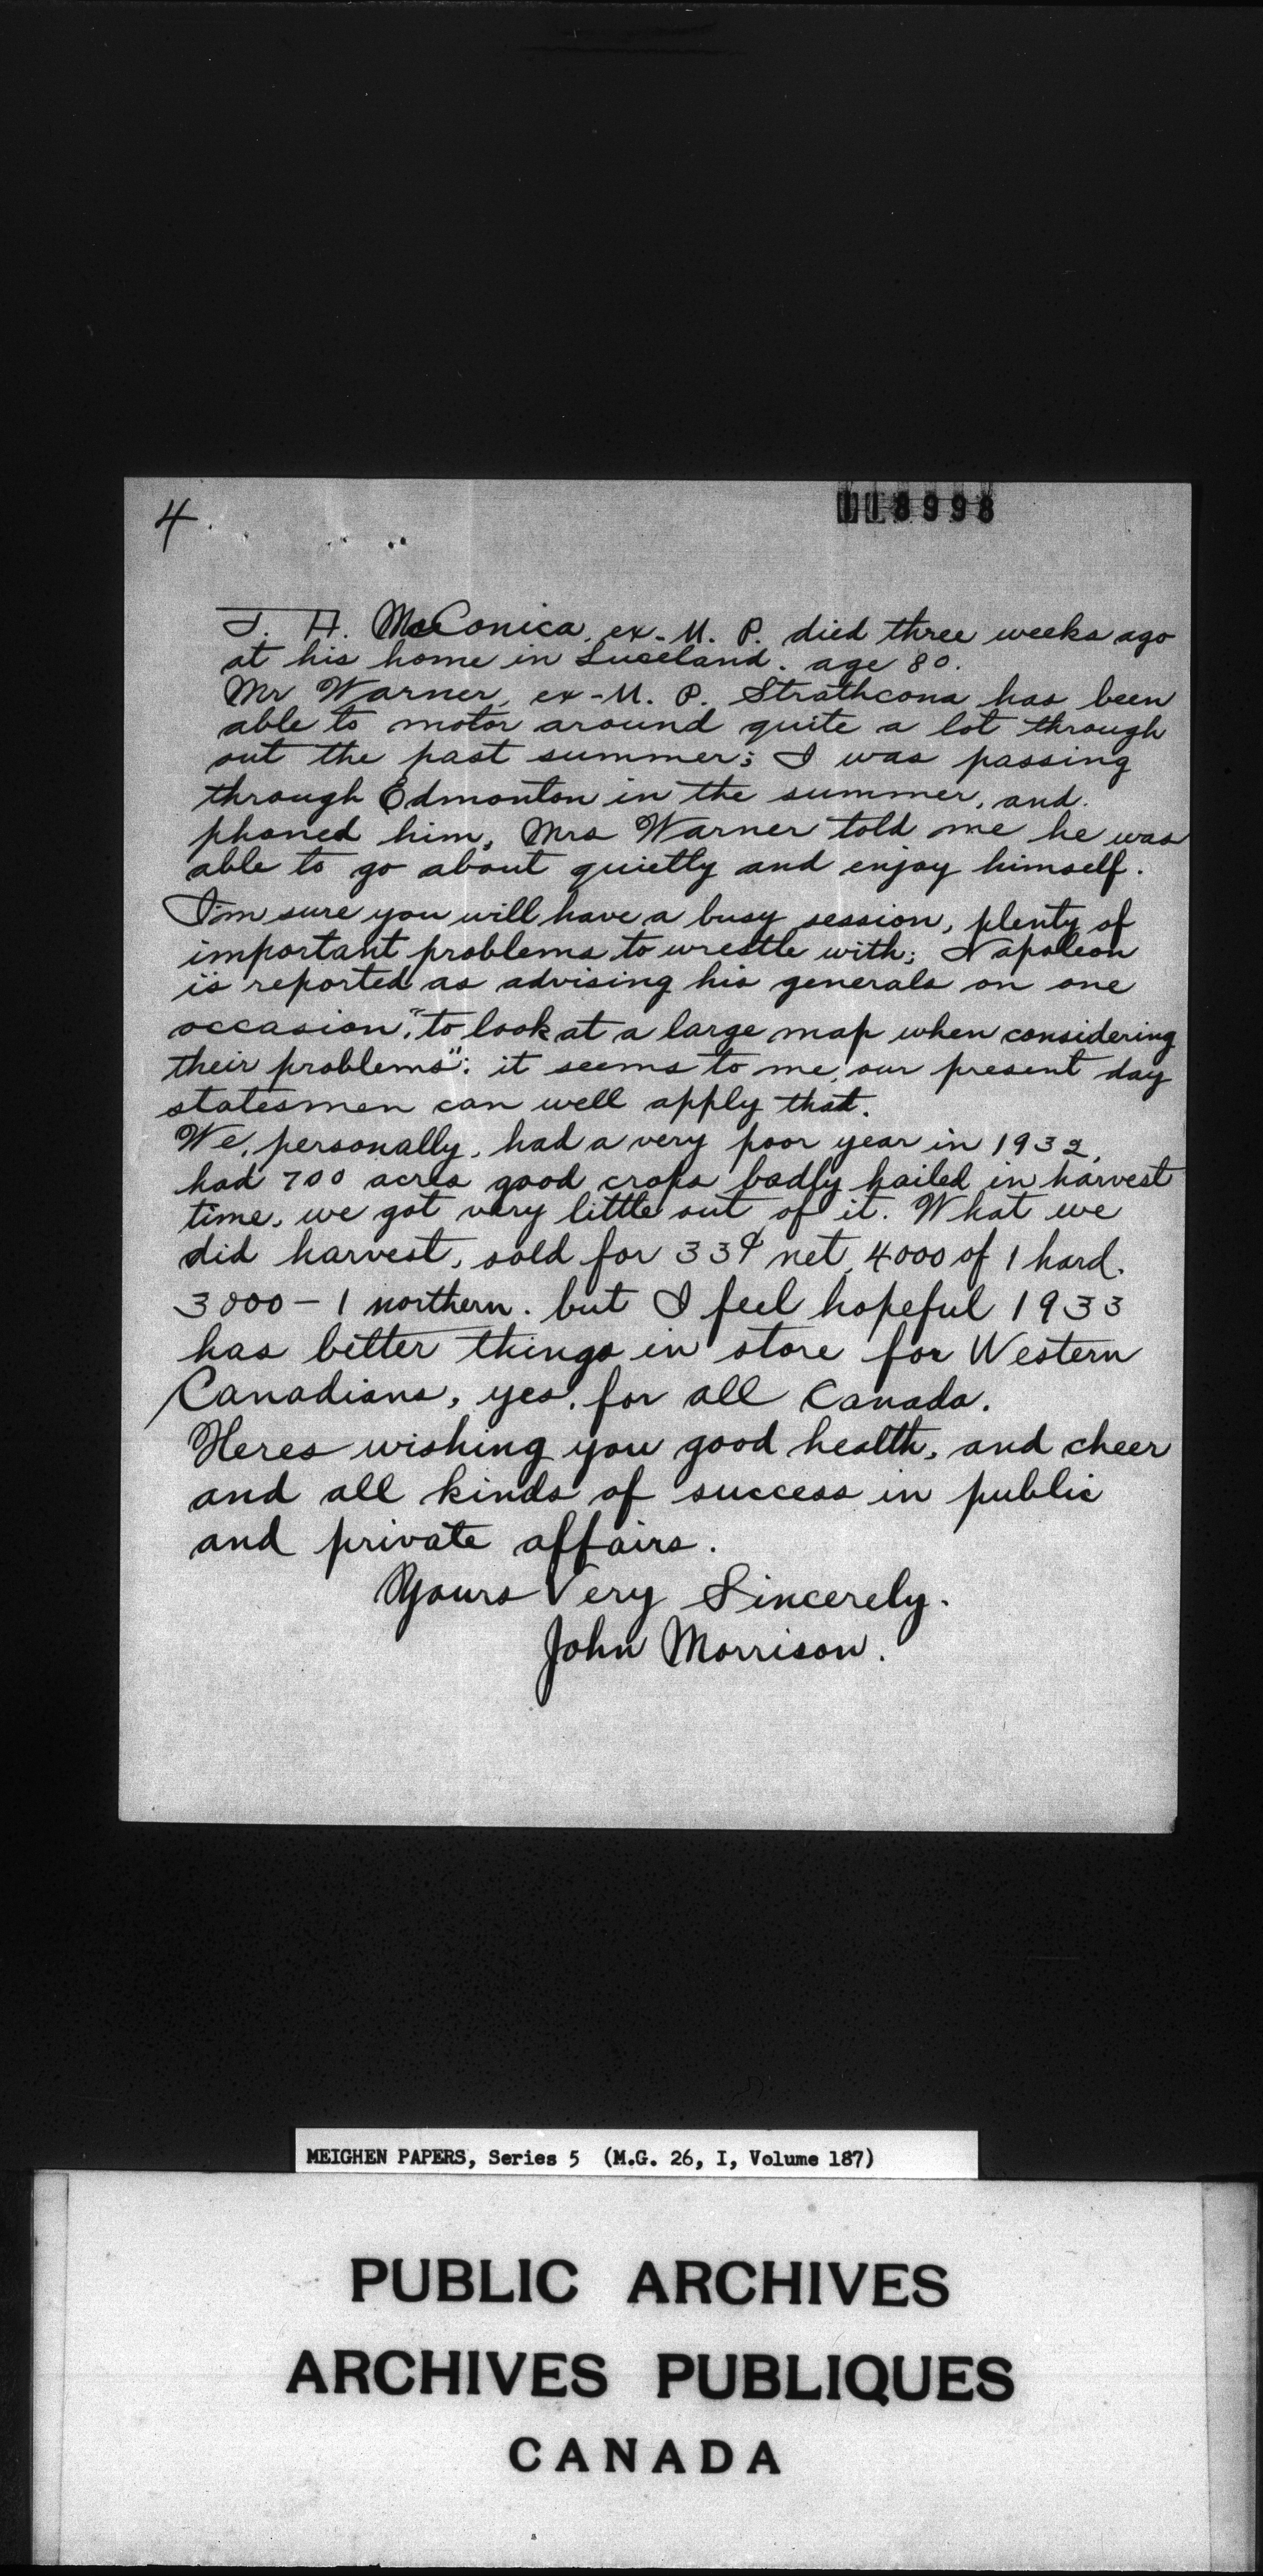 4.
118998
T. H. McConica, ex-M. P. died three weeks ago
at his home in Luseland. age 80.
Mr Warner, ex-M. P. Strathcona has been
able to motor around quite a lot through
out the past summer; I was passing
through Edmonton in the summer, and.
phoned him, Mrs Warner told me he was
able to go about quietly and enjoy himself.
I'm sure you will have a busy session, plenty of
important problems to wrestle with; Napoleon
is reported as advising his generals on one
occasion, "to look at a large map when considering
their problems": it seems to me, our present day
statesmen can well apply that.
We, personally, had a very poor year in 1932,
had 700 acres good crops badly hailed in harvest
time, we got very little out of it. What we
did harvest, sold for 33¢ net, 4000 of 1 hard.
3000 - 1 northern. but I feel hopeful 1933
has better things in store for Western
Canadians, yes, for all Canada.
Heres wishing you good health, and cheer
and all kinds of success in public
and private affairs.
Yours Very Sincerely.
John Morrison.
MEIGHEN PAPERS, Series 5 (M.G. 26, I, Volume 187)
PUBLIC ARCHIVES
ARCHIVES PUBLIQUES
CANADA